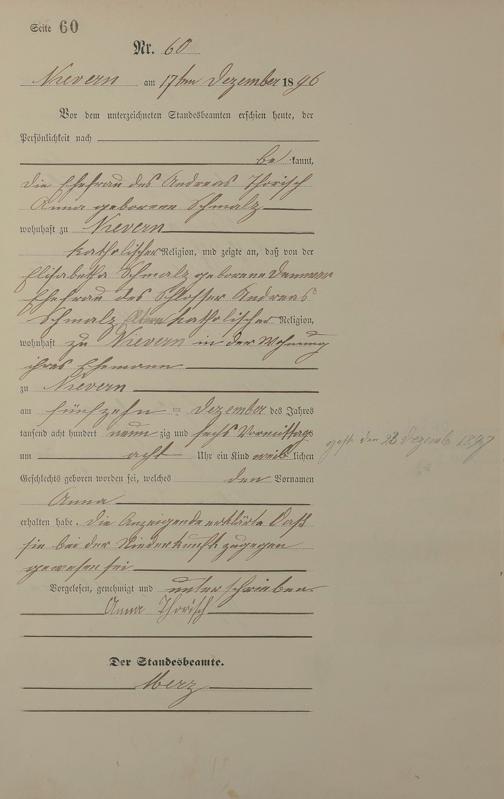 Seite 60
Nr. 60
Nievern am 17ten Dezember 1896
Vor dem unterzeichneten Standesbeamten erschien heute, der
Persönlichkeit nach
be kannt,
die Ehefrau des Andreas Thorisch
Anna geborene Schmalz
wohnhaft zu Nievern
katholischer Religion, und zeigte an, daß von der
Elisabetha Schmalz geborene
Ehefrau des Schlosser Andreas
Schmalz katholischer Religion,
wohnhaft zu Nievern in der Wohnung
ihres Ehemann
zu Nievern
am fünfzehn = Dezember des Jahres
tausend acht hundert neun zig und sechs Vormittags
um acht Uhr ein Kind weib lichen
Geschlechts geboren worden sei, welches den Vornamen
Anna
erhalten habe. Die Anzeigende erklärte daß
sie bei der Niederkunft zugegen
gewesen sei
Vorgelesen, genehmigt und unterschrieben
Anna Thorisch
Der Standesbeamte.
Merz
gest. den 28 Dezemb. 1897